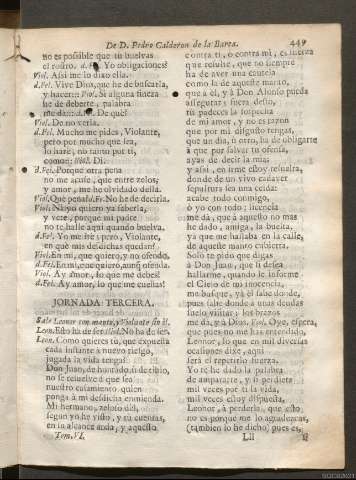 De D. Pedro Calderon de la Barca. 449
no es possible que tu buelvas
el rostro. d.Fel. Yo obligaciones?
Viol. Assi me lo dixo ella.
d.Fel. Vive Dios, que he de buscarla,
y hacerla: Viol. Si alguna fineza
he de deberte, palabra
me da: d.Fel. De què?
Viol. De no verla.
d.Fel. Mucho me pides, Violante,
pero por mucho que sea,
lo harè, no tanto por ti,
como: Viol. Di.
d.Fel. Porque otra pena
no me acuse, que entre zelos,
y amor, me he olvidado della.
Viol. Què pena? d.Fel. No he de decirla.
Viol. Ni yo quiero ya saberla,
y vete, porque mi padre
no te halle aqui quando buelva.
d.Fel. Yo me irè; pero, Violante,
en què mis desdichas quedan?
Viol. En mi, que quiero, y no ofendo.
d.Fel. En mi, que quiero, aunq ofenda.
Viol. Ay amor, lo que me debes!
d.Fel. Ay amor, lo que me cuestas!
JORNADA TERCERA.
Sale Leonor con manto, y Violante sin èl.
Leon. Esto ha de ser. Viol. No ha de ser.
Leon. Como quieres tu, que expuesta
cada instante à nuevo riesgo,
la vida tenga?
Don Juan, de hunrado, ù de tibio,
no se resuelve à que sea
nuestro casamiento quien
ponga à mi desdicha enmienda.
Mi hermano, zeloso dèl,
segun yo he visto, y tu cuentas,
en su alcance anda, y aquesto
Tom. VI.
contra ti, ò contra mi, es fuerza
que resulte, que no siempre
ha de aver una cautela
como la de aquella manto,
que à èl, y à Don Alonso pueda
assegurar; y fuera desto,
tu padeces la sospecha
de mi amor, y no es razon
que por mi disgusto tengas,
que un dia, ù otro, ha de obligarte
à que por salvar tu ofensa,
ayas de decir la mia;
y assi, en irme estoy resuelta,
donde de un vivo cadaver
sepultura sea una celda:
acabe todo conmigo,
ò yo con todo; licencia
me dà, que à aquesto no mas
he dado, amiga, la buelta,
ya que me hallaba en la calle,
de aqueste manto cubierta.
Solo te pido que digas
à Don Juan, que si desea
hallarme, quando le informe
el Cielo de mi inocencia,
me busque, ya èl sabe donde,
pues sabe donde à unas deudas
suelo visitar; los brazos
me dà, y à Dios. Viol. Oye, espera,
que pues no me has entendido,
Leonor, lo que en mil diversas
ocasiones dixe, aqui
serà el repetirlo fuerza.
Yo te he dado la palabra
de ampararte, y si perdiera
mil veces por ti la vida,
mil veces estoy dispuesta,
Leonor, à perderla, que esto
no es porque me lo agradezcas,
(tambien lo he dicho) pues es,
Lll